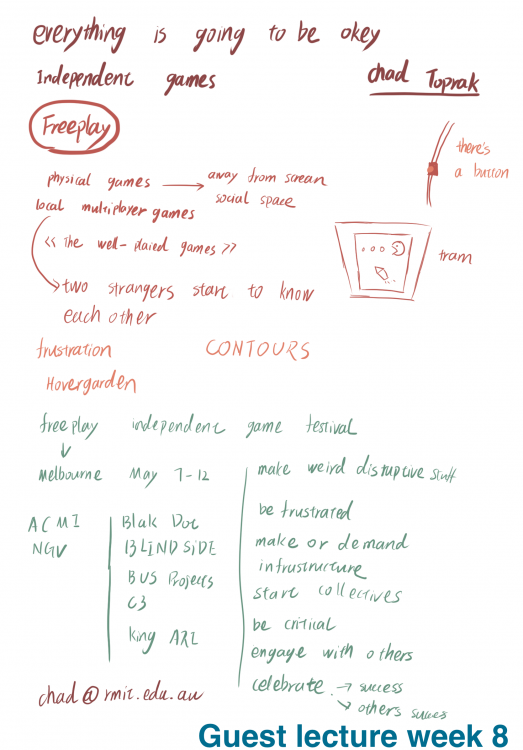 everything is going to be okey
Independent games
chad Toprak
Freeplay
there's
a button
physical games → away from screan
social space
local multiplayer games
<< The well-plaied games >>
tram
two strangers start to know
each other
frustration
CONTOURS
Hovergarden
free play independent game festival
Melbourne May 7-12
ACMI
NGV
Blak Dot
BLINDSIDE
BUS Projects
C3
King ARI
make weird disruptive stuff
be frustrated
make or demand
infrustructure
start collectives
be critical
engage with others
celebrate → success
→ others succes
chad@rmit.edu.au
Guest lecture week 8